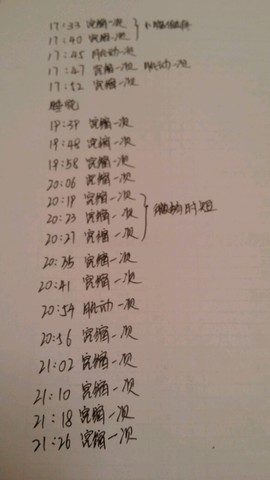 17:33 宫缩一次
17:40 宫缩一次
17:45 胎动一次
17:47 宫缩一次 胎动一次
17:52 宫缩一次
睡觉
19:39 宫缩一次
19:48 宫缩一次
19:58 宫缩一次
20:06 宫缩一次
20:19 宫缩一次
20:23 宫缩一次 缩的时短
20:27 宫缩一次
20:35 宫缩一次
20:41 宫缩一次
20:54 胎动一次
20:56 宫缩一次
21:02 宫缩一次
21:10 宫缩一次
21:18 宫缩一次
21:26 宫缩一次